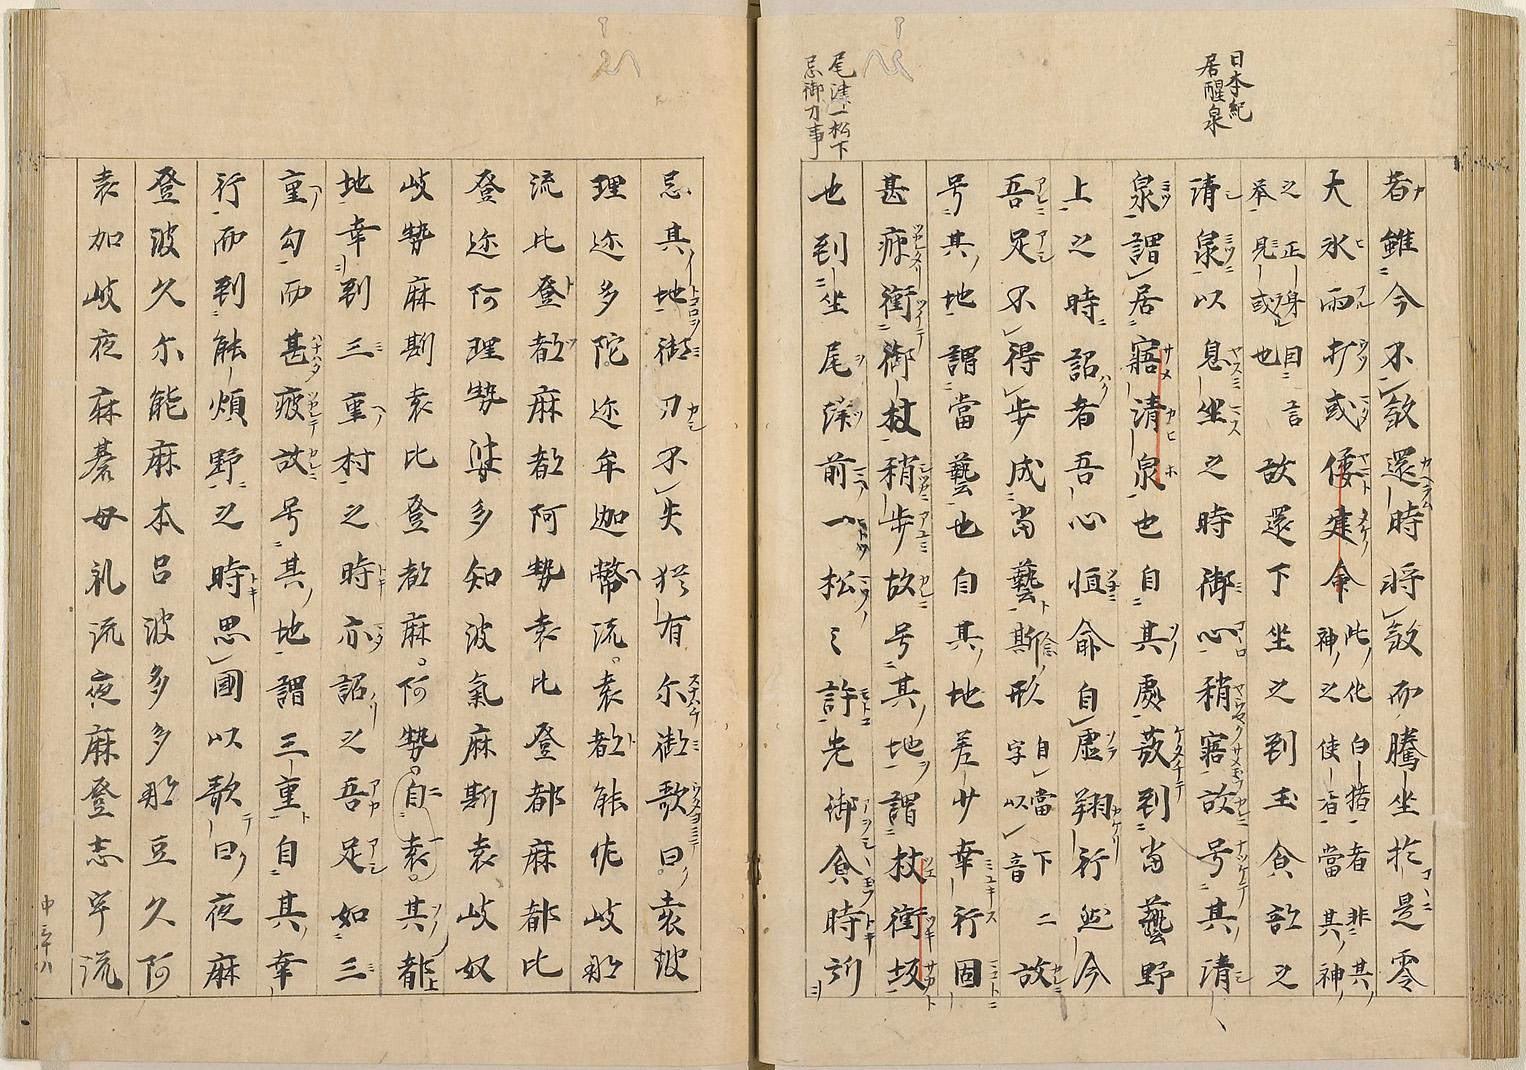 日本紀
居醒泉
者雖今不殺還時将殺而騰坐於是零
大氷雨打或倭建命此化白猪者非其神之使者當其神
之正身因言挙見或也故還下坐之到玉食部之
清泉以息坐之時御心稍寤故号其清
泉謂居寤清泉也自其處發到當藝野
上之時詔者吾心恒念自虚翔行然今
吾足不得歩成當藝斯形自當下二字以音故
号其地謂當藝也自其地差少幸行因
甚疲衝御杖稍歩故号其地謂杖衝坂
也到坐尾津前一松之許先御食時所
尾津一松下
忌御刀事
忌其地御刀不失猶有尓御歌曰袁波
理迩多陀迩牟迦幣流袁都能佐岐那
流比登都麻都阿勢袁比登都麻都比
登迩阿理勢婆多知波氣麻斯袁岐奴
岐勢麻斯袁比登都麻阿勢自袁其都
地幸到三重村之時亦詔之吾足如三
重勾而甚疲故号其地謂三重自其幸
行而到能煩野之時思國以歌曰夜麻
登波久尓能麻本呂波多多那豆久阿
袁加岐夜麻碁母礼流夜麻登志宇流
中三十八